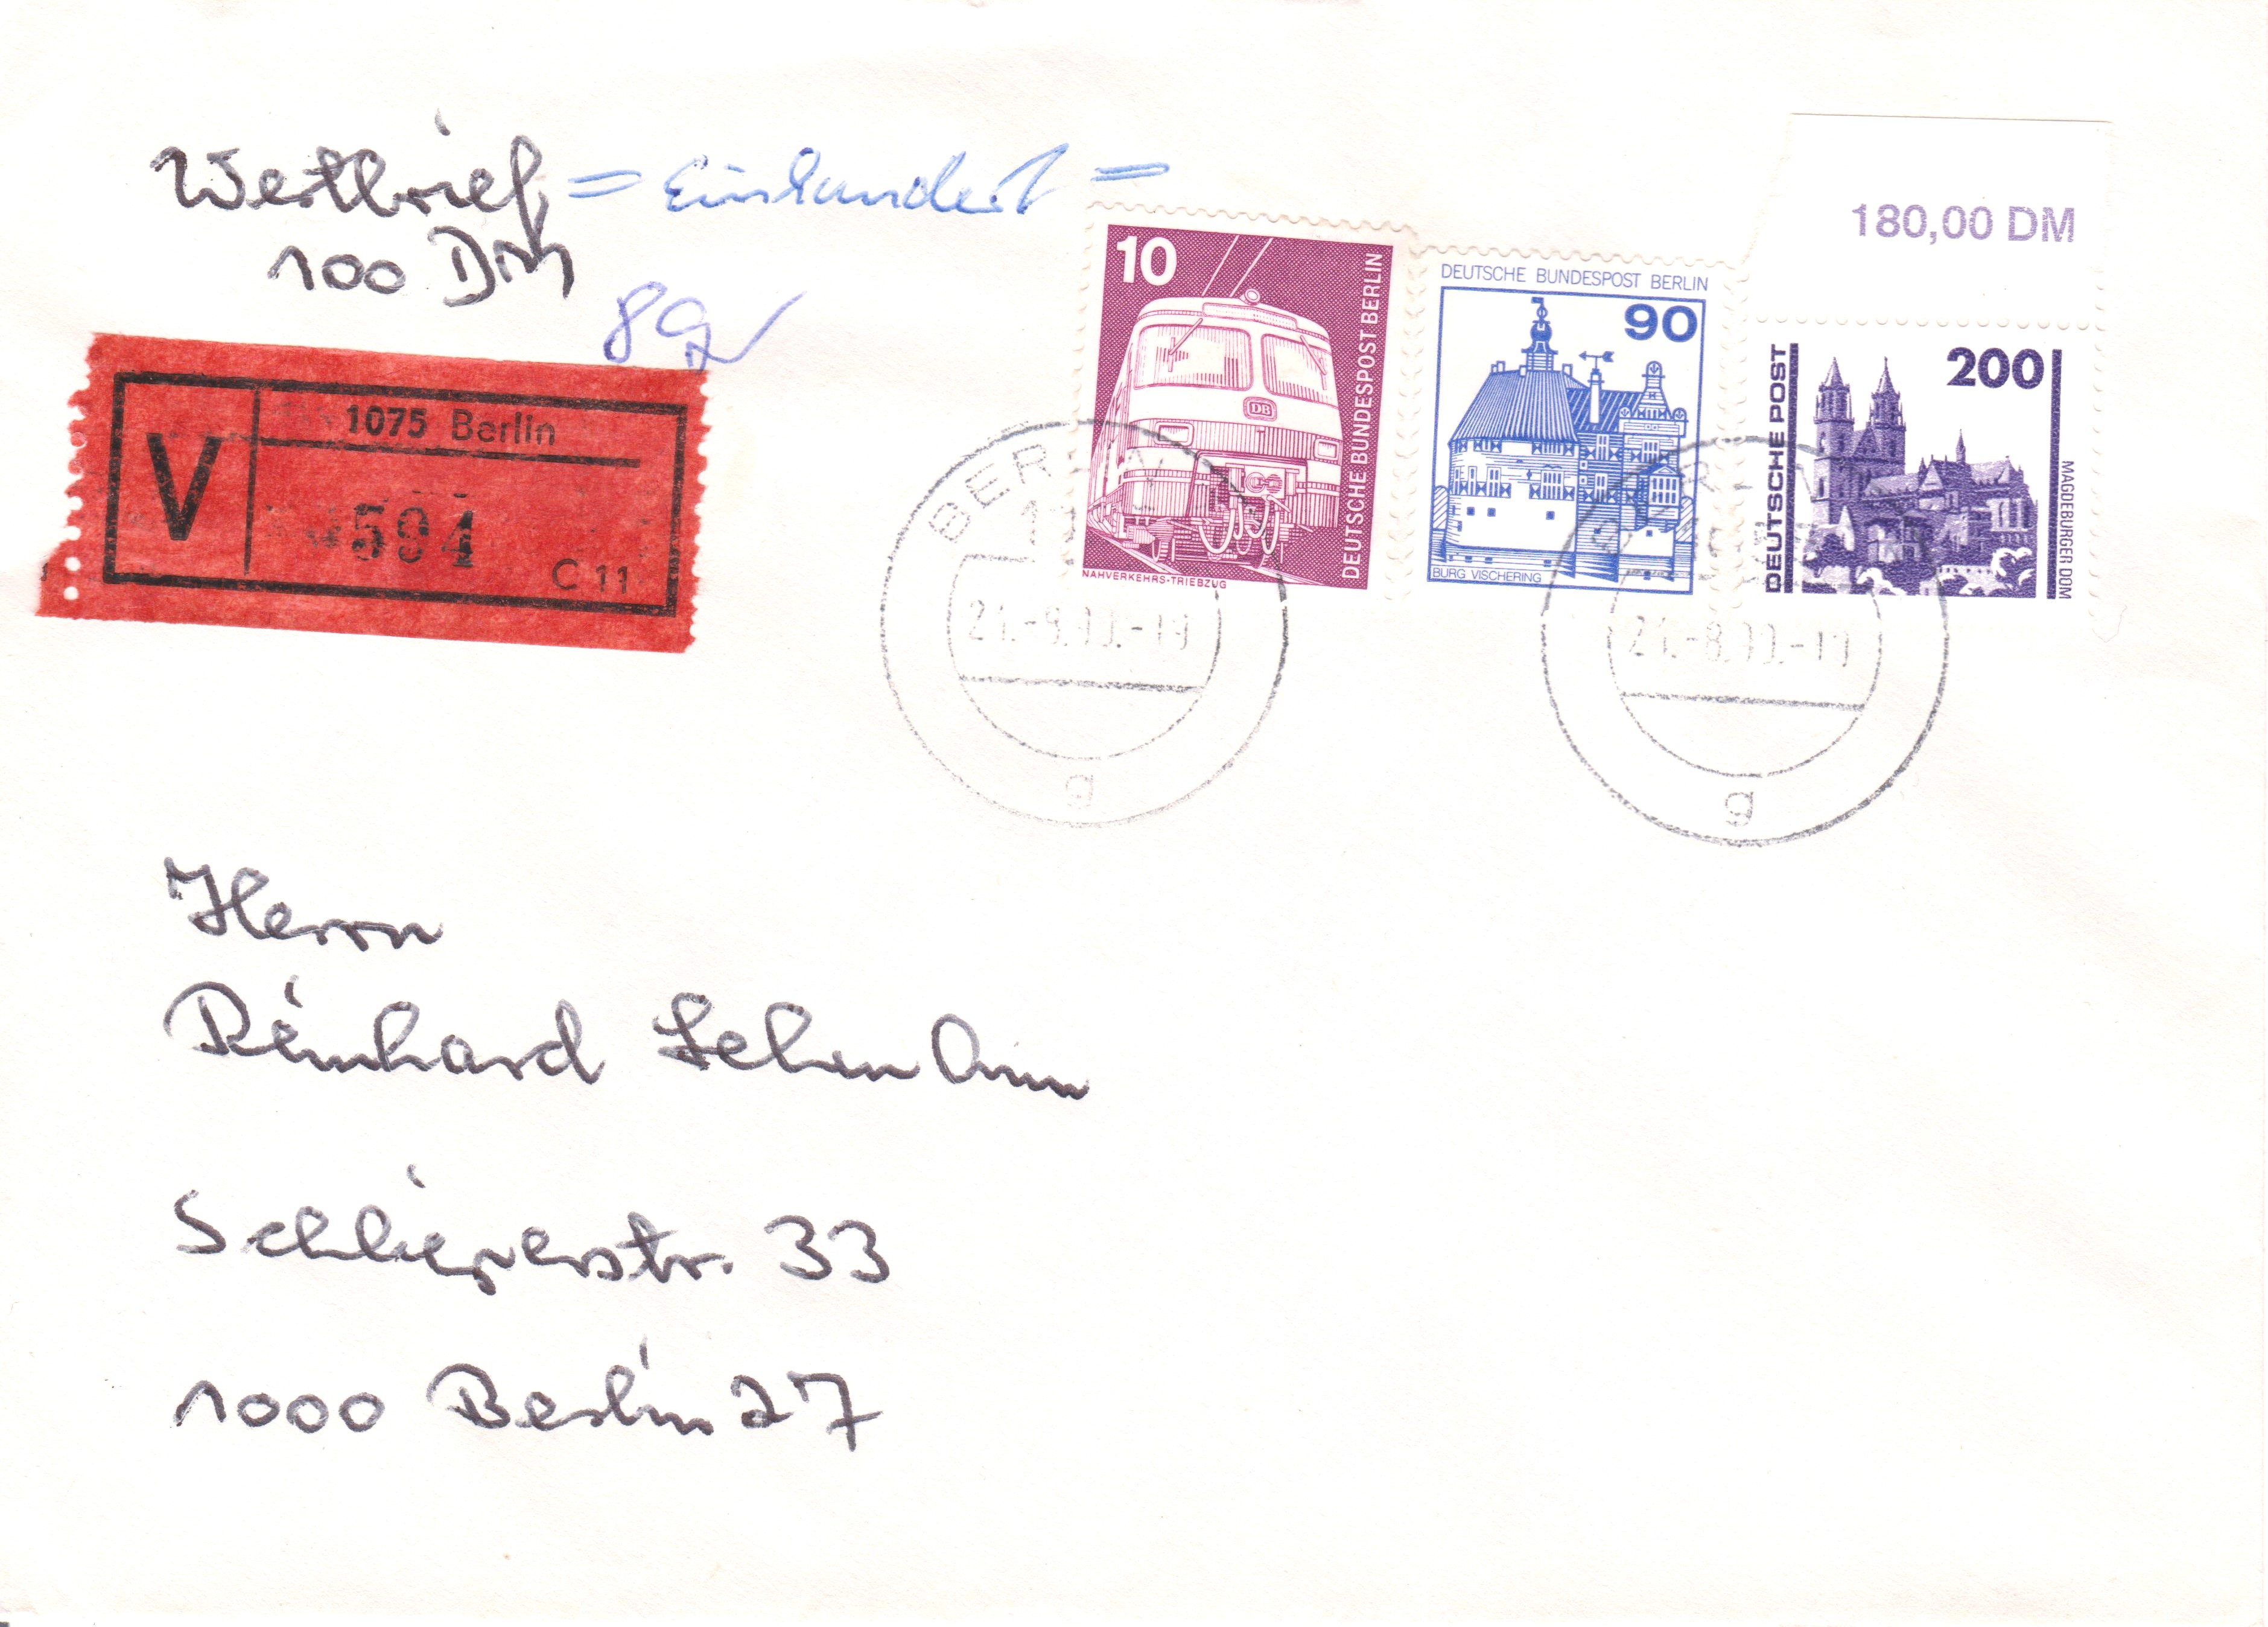 Wertbrief = Einhundert =
100 DM
8 g
180,00 DM
V
1075 Berlin
594
C 11
10
DEUTSCHE BUNDESPOST BERLIN
NAHVERKEHRS-TRIEBZUG
DB
DEUTSCHE BUNDESPOST BERLIN
90
BURG VISCHERING
200
DEUTSCHE POST
MAGDEBURGER DOM
BERLIN
g
g
Herrn
Reinhard Lehmann
Schlieperstr. 33
1000 Berlin 27